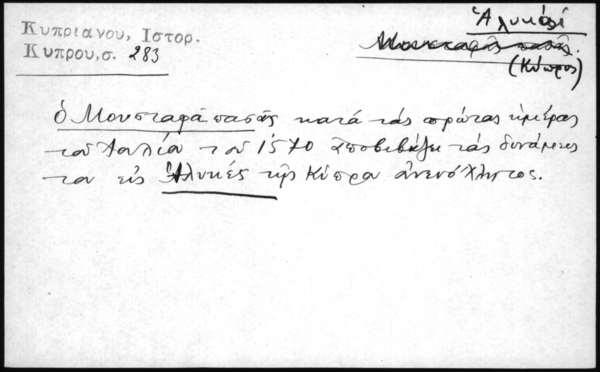 Κυπριανου, Ιστορ.
Κυπρου, σ. 283
Ἁλυκαί
Μουσταφᾶς πασᾶς.
(Κύπρος)
ὁ Μουσταφᾶ πασᾶς κατά τάς πρώτας ἡμέρας
τοῦ Ἰουλίου τοῦ 1570 ἀποβιβάζει τάς δυνάμεις
του εἰς Ἁλυκές τῆς Κύπρου ἀνενόχλητος.